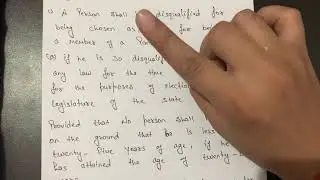 1) A Person shall disqualified for
being chosen as for be
a member of a Pan
(a) if he is so disqualifi
any law for the time
for the purposes of election
legislature of the state
Provided that no person shall
on the ground that he is less
twenty-five years of age, if he
has attained the age of twenty-